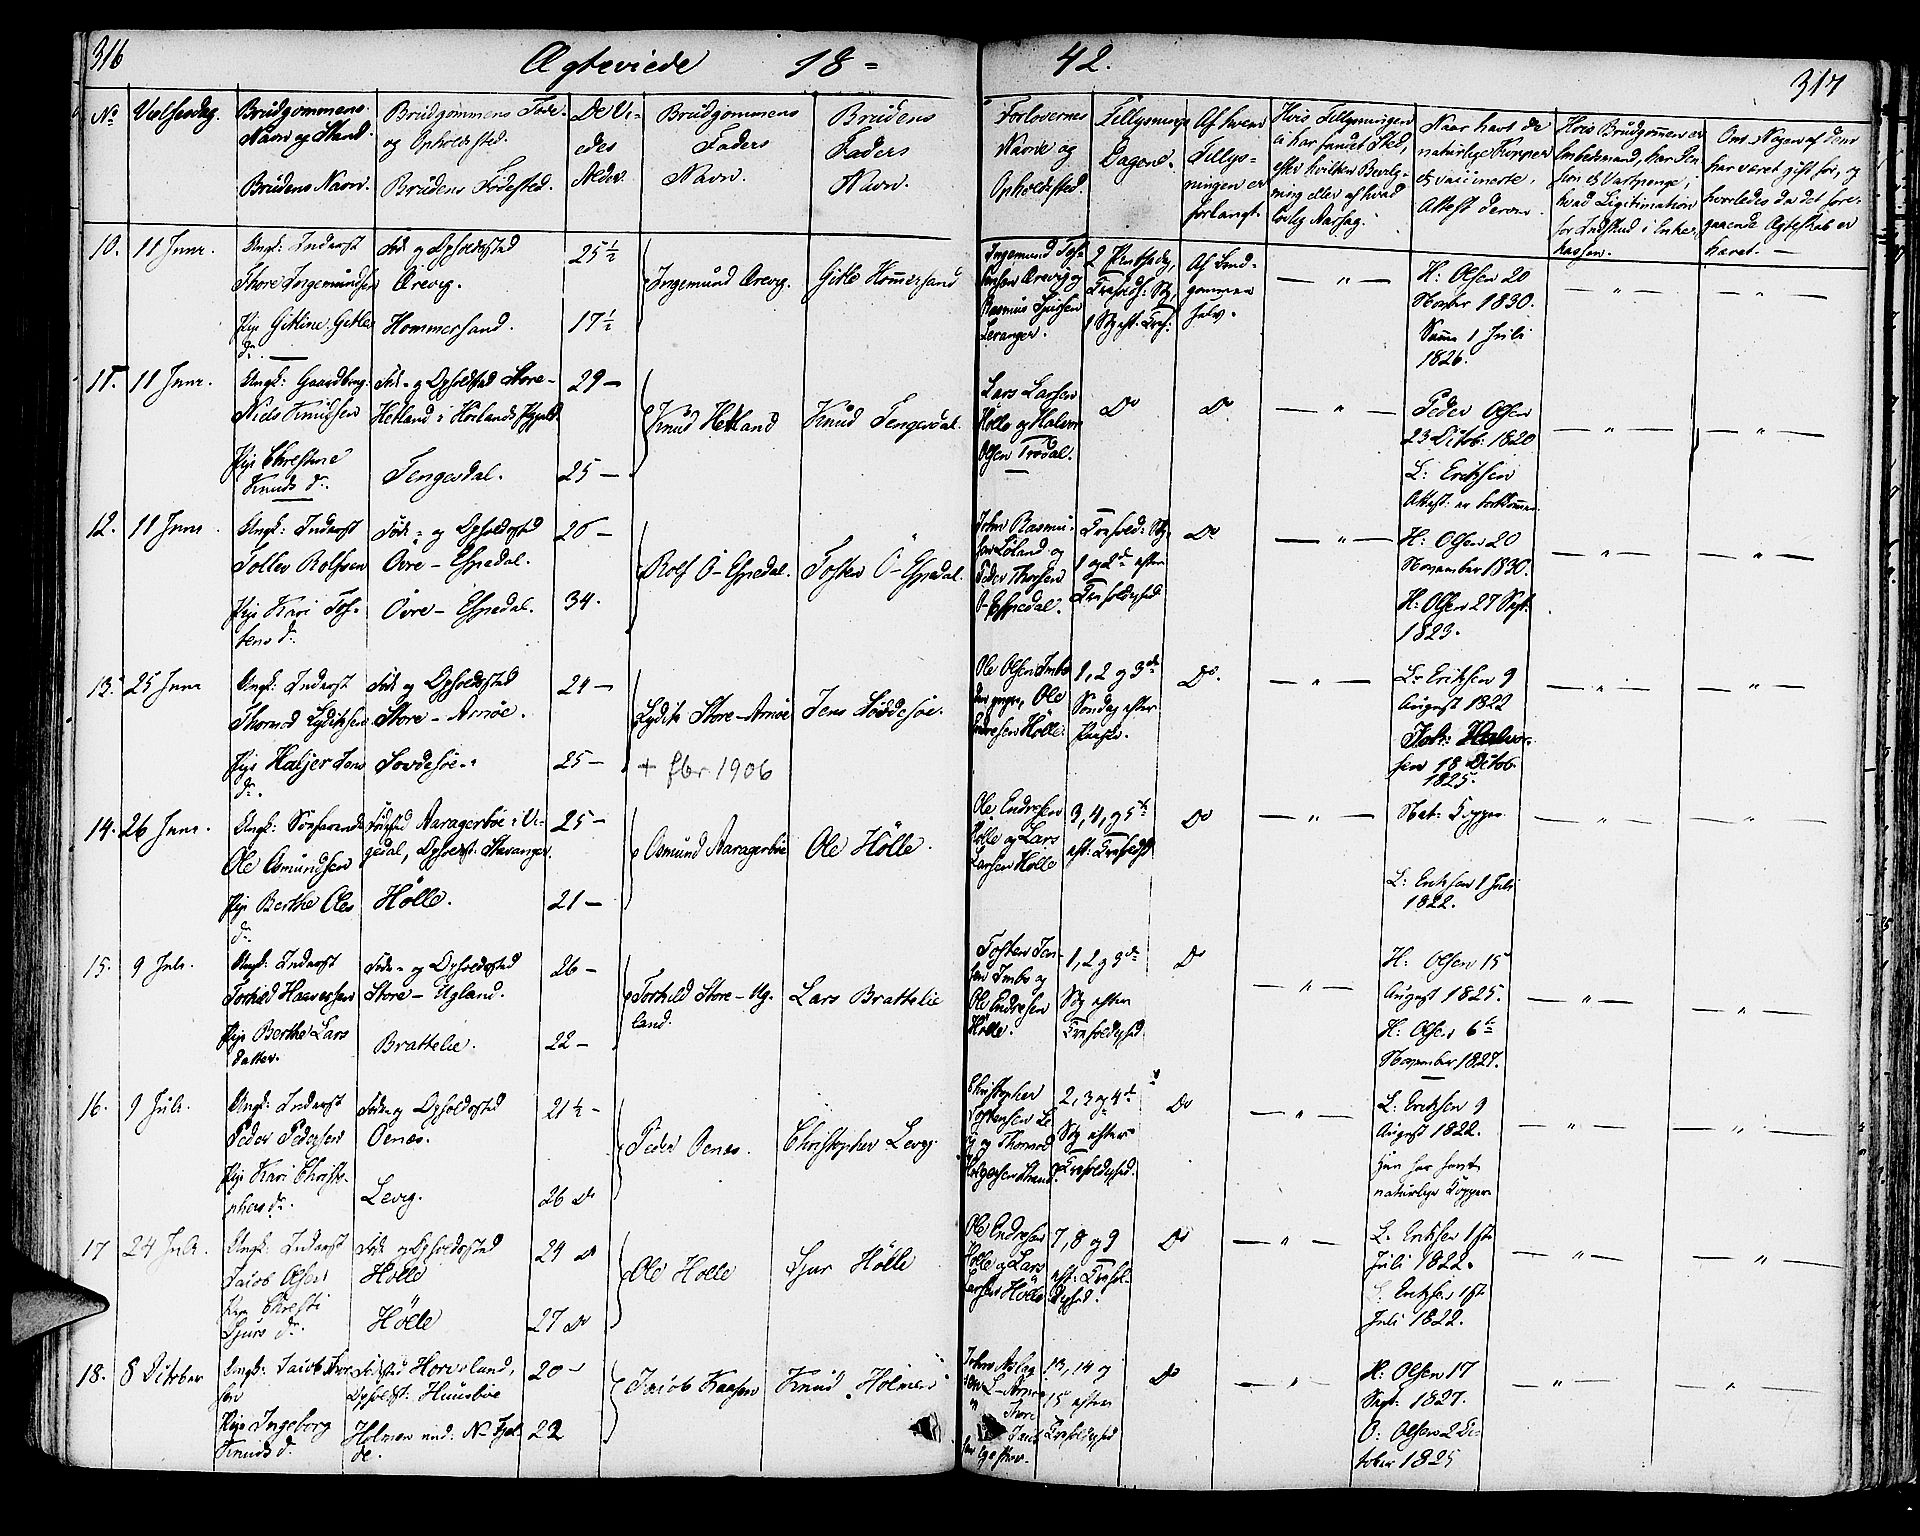 316
Ægteviede 18=
42.
317
No
Vielsesdag.
Brudgommens
Navn og Stand.
Brudens Navn.
Brudgommens Føde
og Opholdssted.
Brudens Fødested.
De Vi-
edes
Alder.
Brudgommens
Faders
Navn.
Brudens
Faders
Navn.
Forlovernes
Navne og
Opholdssted.
Tillysnings
Dagene.
Af hvem
Tillys-
ningen er
forlangt.
Hvis Tillysningen
ei har fundet Sted,
efter hvilken Bevilg-
ning eller af hvad
lovlig Aarsag.
Naar havt de
naturlige Kopper
el. vaccinerte,
Attest derom.
Hvis Brudgommen er
Embedsmand, har Pen
sion el. Vartpenge,
hvad Legitimation
for Indskud i Enke,
kassen.
Om Nogen af dem
har været gift før, og
hvorledes da det fore-
gaaende Ægteskab er
hævet.
10.
11 Juni.
Ungk: Inderst
Thore Ingemundsen
Pige Gitline Gitles
d.
Føde og Opholdssted
Ørevig.
Hommersand.
25½
17½
Ingemund Ørevig.
Gitle Hommersand
Ørevig og
Rasmus
Leranger.
Af Brud-
gommen
selv.
— " —
H: Olsen 20
Novbr 1830.
Samme 1 Juli
1826.
— " —
— " —
11.
11 Juni.
Ungk: Gaardbrug.
Niels Knudsen
Pige Christine
Knuds d.
Føde- og Opholdssted Store-
Hetland i Høilands Præstegjeld
Tengesdal.
29 —
25 —
Knud Hetland
Knud Tengesdal.
Lars Larsen
Hölle og Halvor
Olsen Trodal.
Do
Do
— " —
Peder Olsen
23 Octob: 1820
L: Eriksen
Attest: er bortkommen.
— " —
— " —
12.
11 Juni
Ungk: Inderst
Tollev Rolfsen
Pige Kari Tos-
tens d.
Føde- og Opholdssted
Övre-Espedal.
Övre-Espedal.
26 —
34.
Rolf Ö-Espedal.
Tosten Ö-Espedal.
John Rasmu-
sen Löland og
Peder Thorsen
Ö-Espedal.
1 og 2de efter
Trefoldighed
Do
— " —
H: Olsen 20
November 1830.
H: Olsen 27 Sept.
1823.
— " —
— " —
13.
25 Juni
Ungk: Inderst
Thormod Lyditsen
Pige Jens
d.
Føde og Opholdssted
Store-Amöe.
24 —
25 —
Lydik Store-Amöe
+ fbr. 1906
Jens
Ole Olsen Imbs
den yngre, Ole
Endresen Hölle.
1, 2 og 3de
Söndag efter
Pintse.
Do.
— " —
L: Eriksen 9
August 1822
18 Octob.
1825.
— " —
— " —
14.
26 Juni.
Ungk: Søefarende
Ole Osmundsen
Pige Berthe Oles
d.
Födested Aaragerböe i Vi-
gedal, Opholdst: Stavanger.
Hölle.
25 —
21 —
Osmund Aaragerböe
Ole Hölle.
Ole Endresen
Hölle og Lars
Larsen Hölle
3, 4, og 5te
eft: Trefoldgh.
Do
— " —
Nat: Kopper
L: Eriksen 1 Juli
1822.
— " —
— " —
15.
9 Juli.
Ungk: Inderst
Torkild
Pige Berthe Lars
datter.
Føde- og Opholdssted
Store-Ugland.
Brattelie.
26 —
22 —
Torkild Store-Ug-
land.
Lars Brattelie
Tosten Jen-
sen Imbs og
Ole Endresen
Hölle.
1, 2 og 3de
Sdg efter
Trefoldighed.
Do
— " —
H: Olsen 15
August 1825.
H: Olsen 6te
November 1827.
— " —
— " —
16.
9 Juli.
Ungk: Inderst
Peder Pedersen
Pige Kari Christo-
phers d.
Føde og Opholdssted
Oenæs.
Levig.
21½ —
26 Do
Peder Oenæs.
Christopher Levig
Christopher
Tostensen Le
og Thormod
2, 3 og 4de
Sdg efter
Trefoldighed.
Do
— " —
L: Eriksen 9
August 1822.
Hun har havt
naturlige Kopper
— " —
— " —
17
24 Juli.
Ungk: Inderst
Jacob Olsen
Pige Christi
Sjurs d.
Føde og Opholdssted
Hölle
Hölle
29 Do
27 Do
Ole Hölle
Sjur Hölle
Ole Endresen
Hölle og Lars
Larsen Hölle
7, 8 og 9
eft: Trefol-
dighed.
Do
— " —
L. Eriksen 1st
Juli 1822.
L. Eriksen 1st
Juli 1822.
— " —
— " —
18.
8 Octber
Ungk: Jacob
sen
Pige Ingeborg
Knuds d.
Födested
Opholdst:
Holmen
20 —
22
Jacob
Knud Holmen
John Aslag
13, 14 og
15 efter
Trefoldighed
Do
— " —
H: Olsen 17
Sept: 1827.
O: Olsen 2 Oc-
tober 1825
— " —
— " —